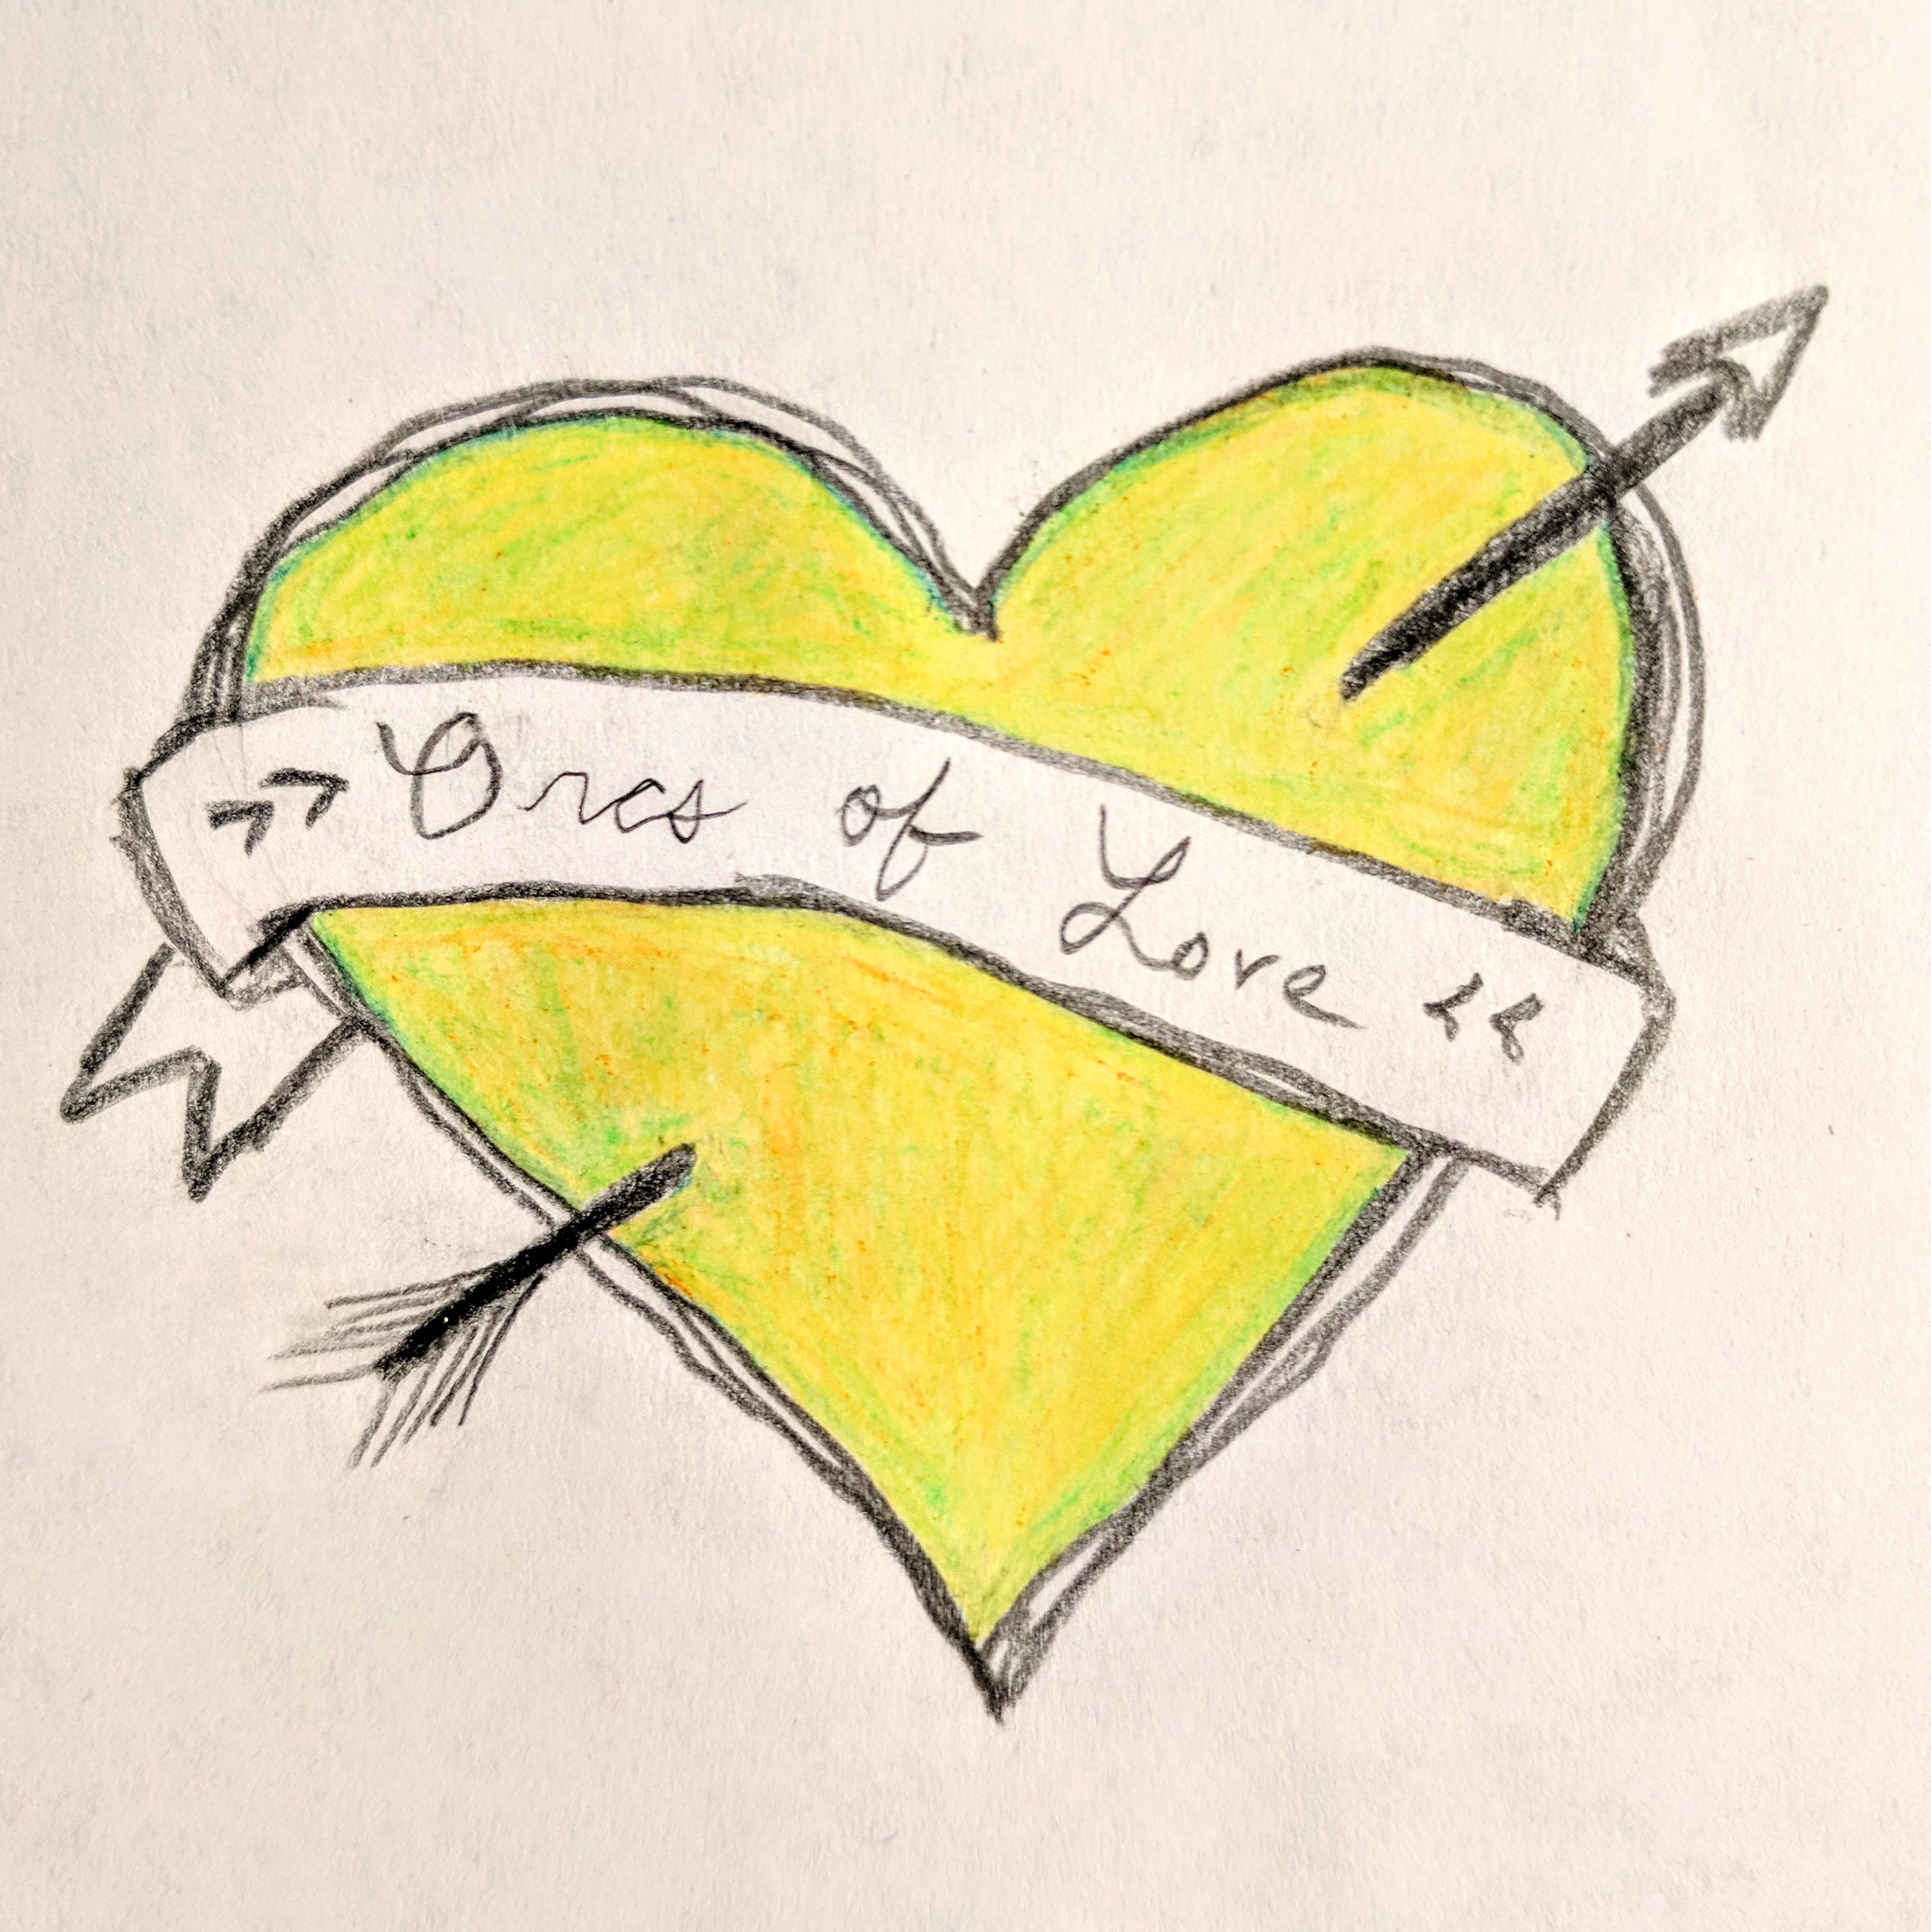 >> Orcs of Love <<